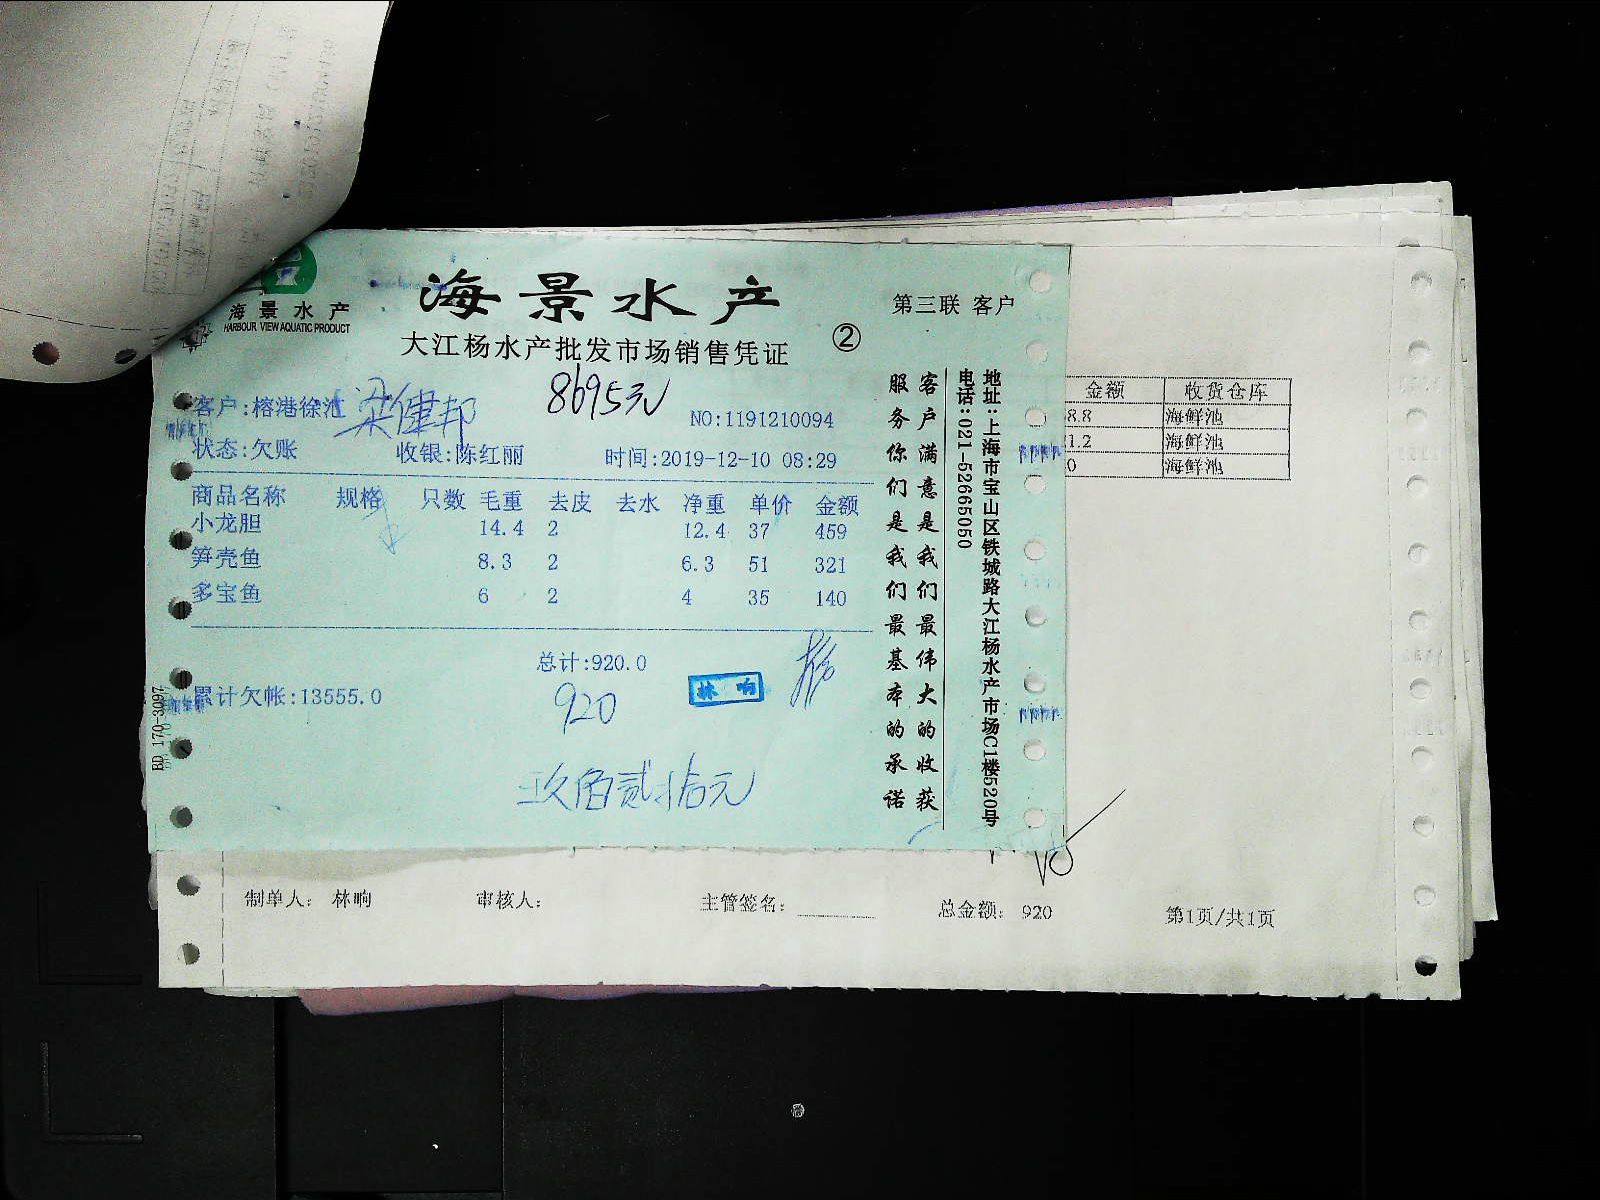 海景水产
HARBOUR VIEW AQUATIC PRODUCT
海景水产
大江杨水产批发市场销售凭证
②
第三联 客户
客户:榕港徐汇 梁健邦
8695元
NO:1191210094
状态:欠账 收银:陈红丽 时间:2019-12-10 08:29
商品名称 规格 只数 毛重 去皮 去水 净重 单价 金额
小龙胆 14.4 2 12.4 37 459
笋壳鱼 8.3 2 6.3 51 321
多宝鱼 6 2 4 35 140
总计:920.0
累计欠帐:13555.0
920
林响
玖佰贰拾元
客户满意是我们最伟大的收获
服务你们是我们最基本的承诺
地址:上海市宝山区铁城路大江杨水产市场C1楼520号
电话:021-52665050
BD 170-3097
金额 收货仓库
8.8 海鲜池
1.2 海鲜池
0 海鲜池
制单人: 林响 审核人: 主管签名: 总金额: 920 第1页/共1页